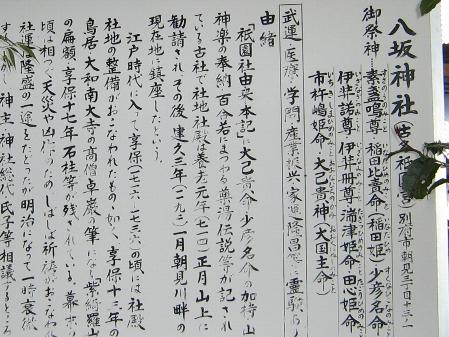 八坂神社(古名祇園宮)別府市朝見三丁目十三ー一
御祭神……素盞鳴尊 稲田比賣命(稲田姫)少彦名命
伊弉諾尊 伊弉冊尊 湍津姫命 田心姫命
市杵嶋姫命 大己貴神(大国主命)
武運・医療・学門・産業振興・家運隆昌等に霊験あ
由緒
「祇園社由来本記」に大己貴命少彦名命の加持山
神楽の奉納百合若にまつわる薬湯伝説等が記され
ている古社で社地社殿は養老元年(七一四)正月山上に
勧請されその後建久三年(一一九二)一月朝見川畔の
現在地に鎮座したという。
江戸時代に入って享保(一七一六~一七三六)の頃には社殿
社地の整備がおこなわれたものの如く、享保十三年の
鳥居、大和南大寺の高僧卓巌の筆になる紫綺羅山
の扁額、享保十七年石柱等が残されている。幕末の
頃は相つぐ天災や凶作のためしばしば祈祷がおこなわれ
社運は隆盛の一途をたどったが明治になって一時衰微
神主神社総代氏子等相議するところ